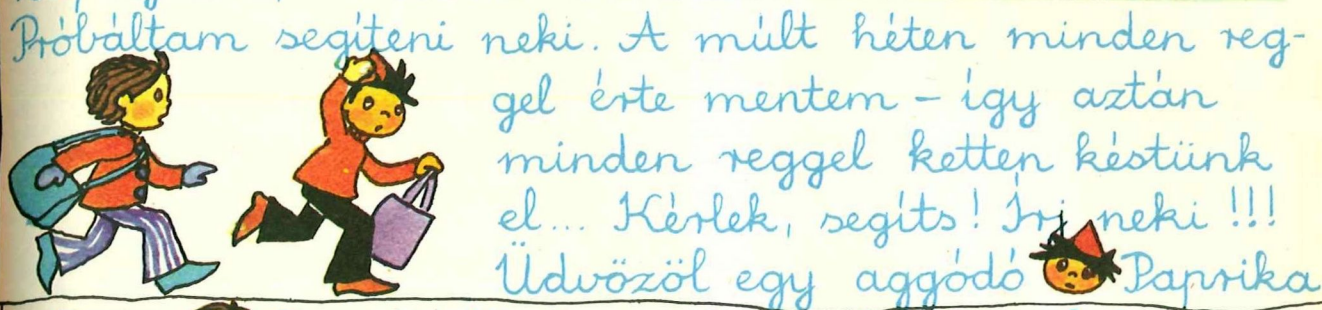 Próbáltam segíteni neki. A múlt héten minden reg-
gel érte mentem – így aztán
minden reggel ketten késtünk
el... Kérlek, segíts! Írj neki!!!
Üdvözöl egy aggódó Paprika